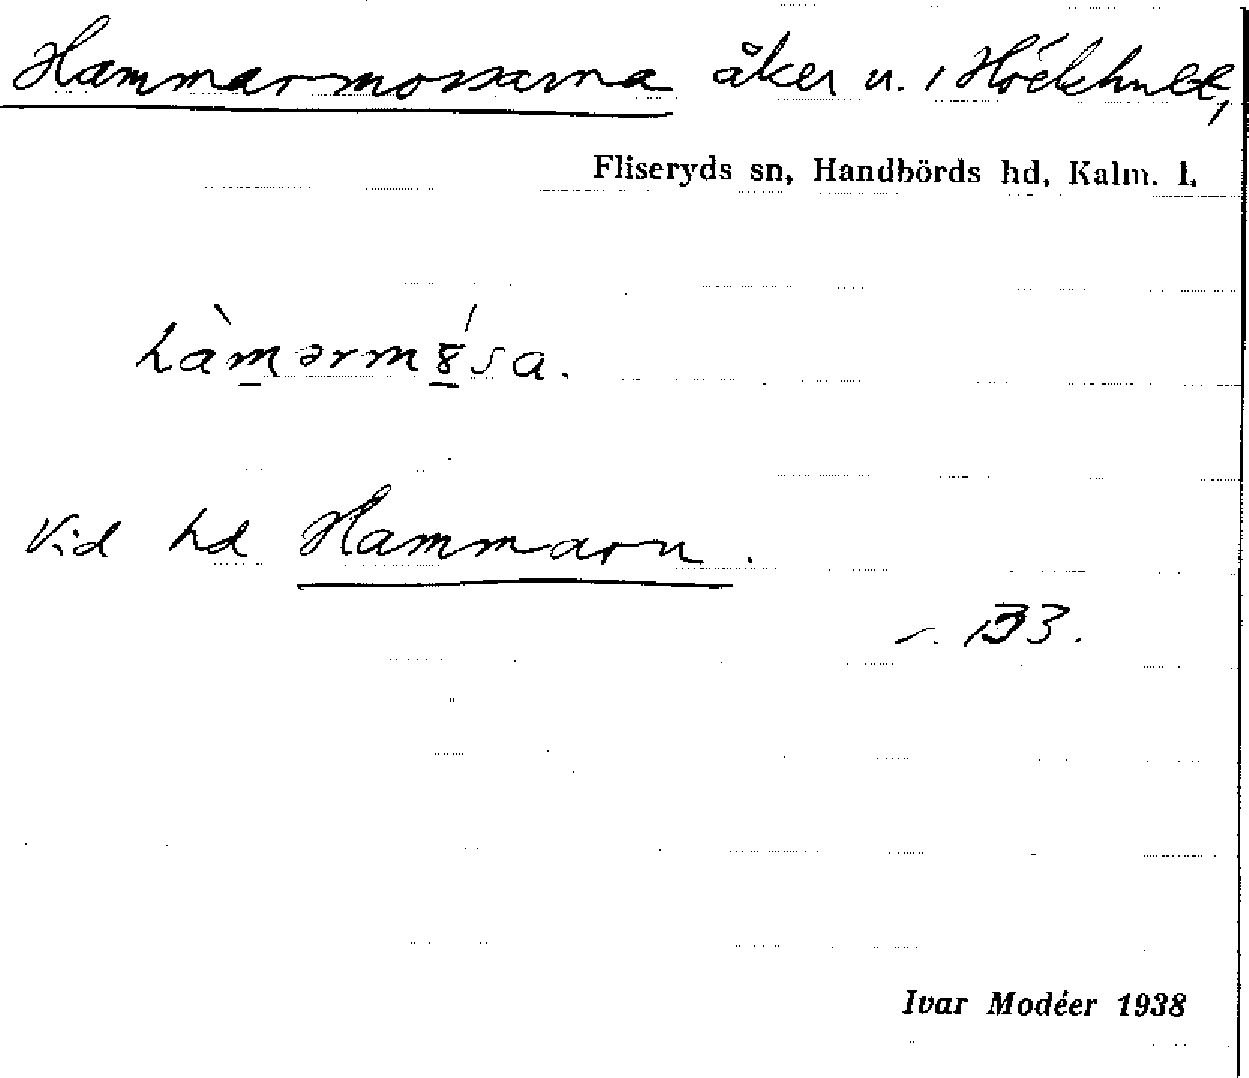 Hammarmossarna åker u. Höckhult,
Fliseryds sn, Handbörds hd, Kalm. l.
hàmərm8́sa.
Vid hd Hammarn.
B3.
Ivar Modéer 1938